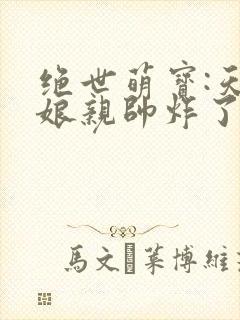 绝世萌寶:天
娘親帥炸了
馬文 莱博維